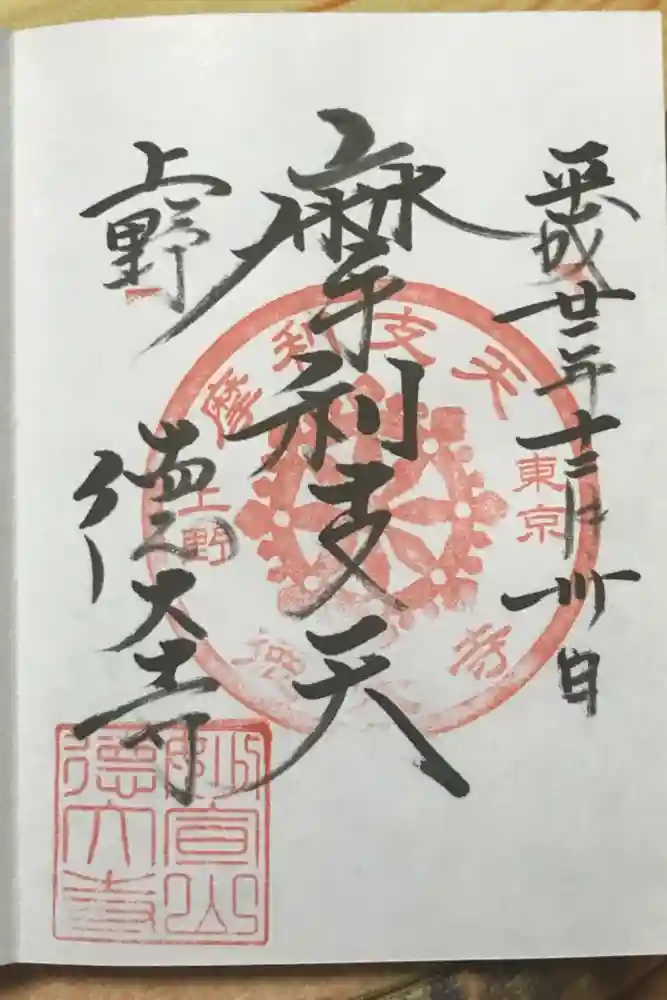 平成廿二年十二月卅日
摩利支天
上野
徳大寺
摩利支天
東京
上野
徳大寺
妙宣山
徳大寺